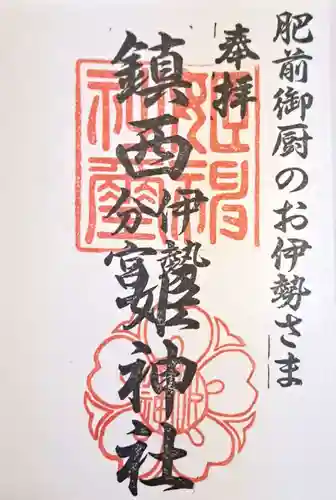 肥前御厨のお伊勢さま
奉拝
鎮西伊勢分宮姫神社